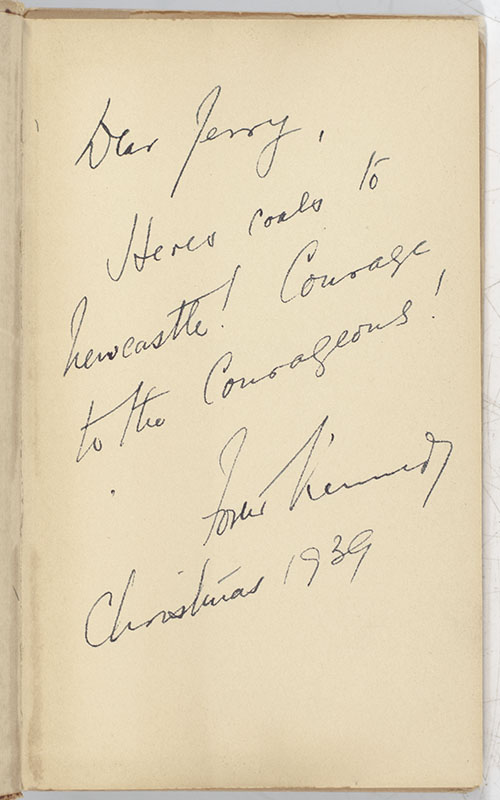 Dear Jerry,
Heres coals to
newcastle! Courage
to the Courageous!
Kennedy
Christmas 1939